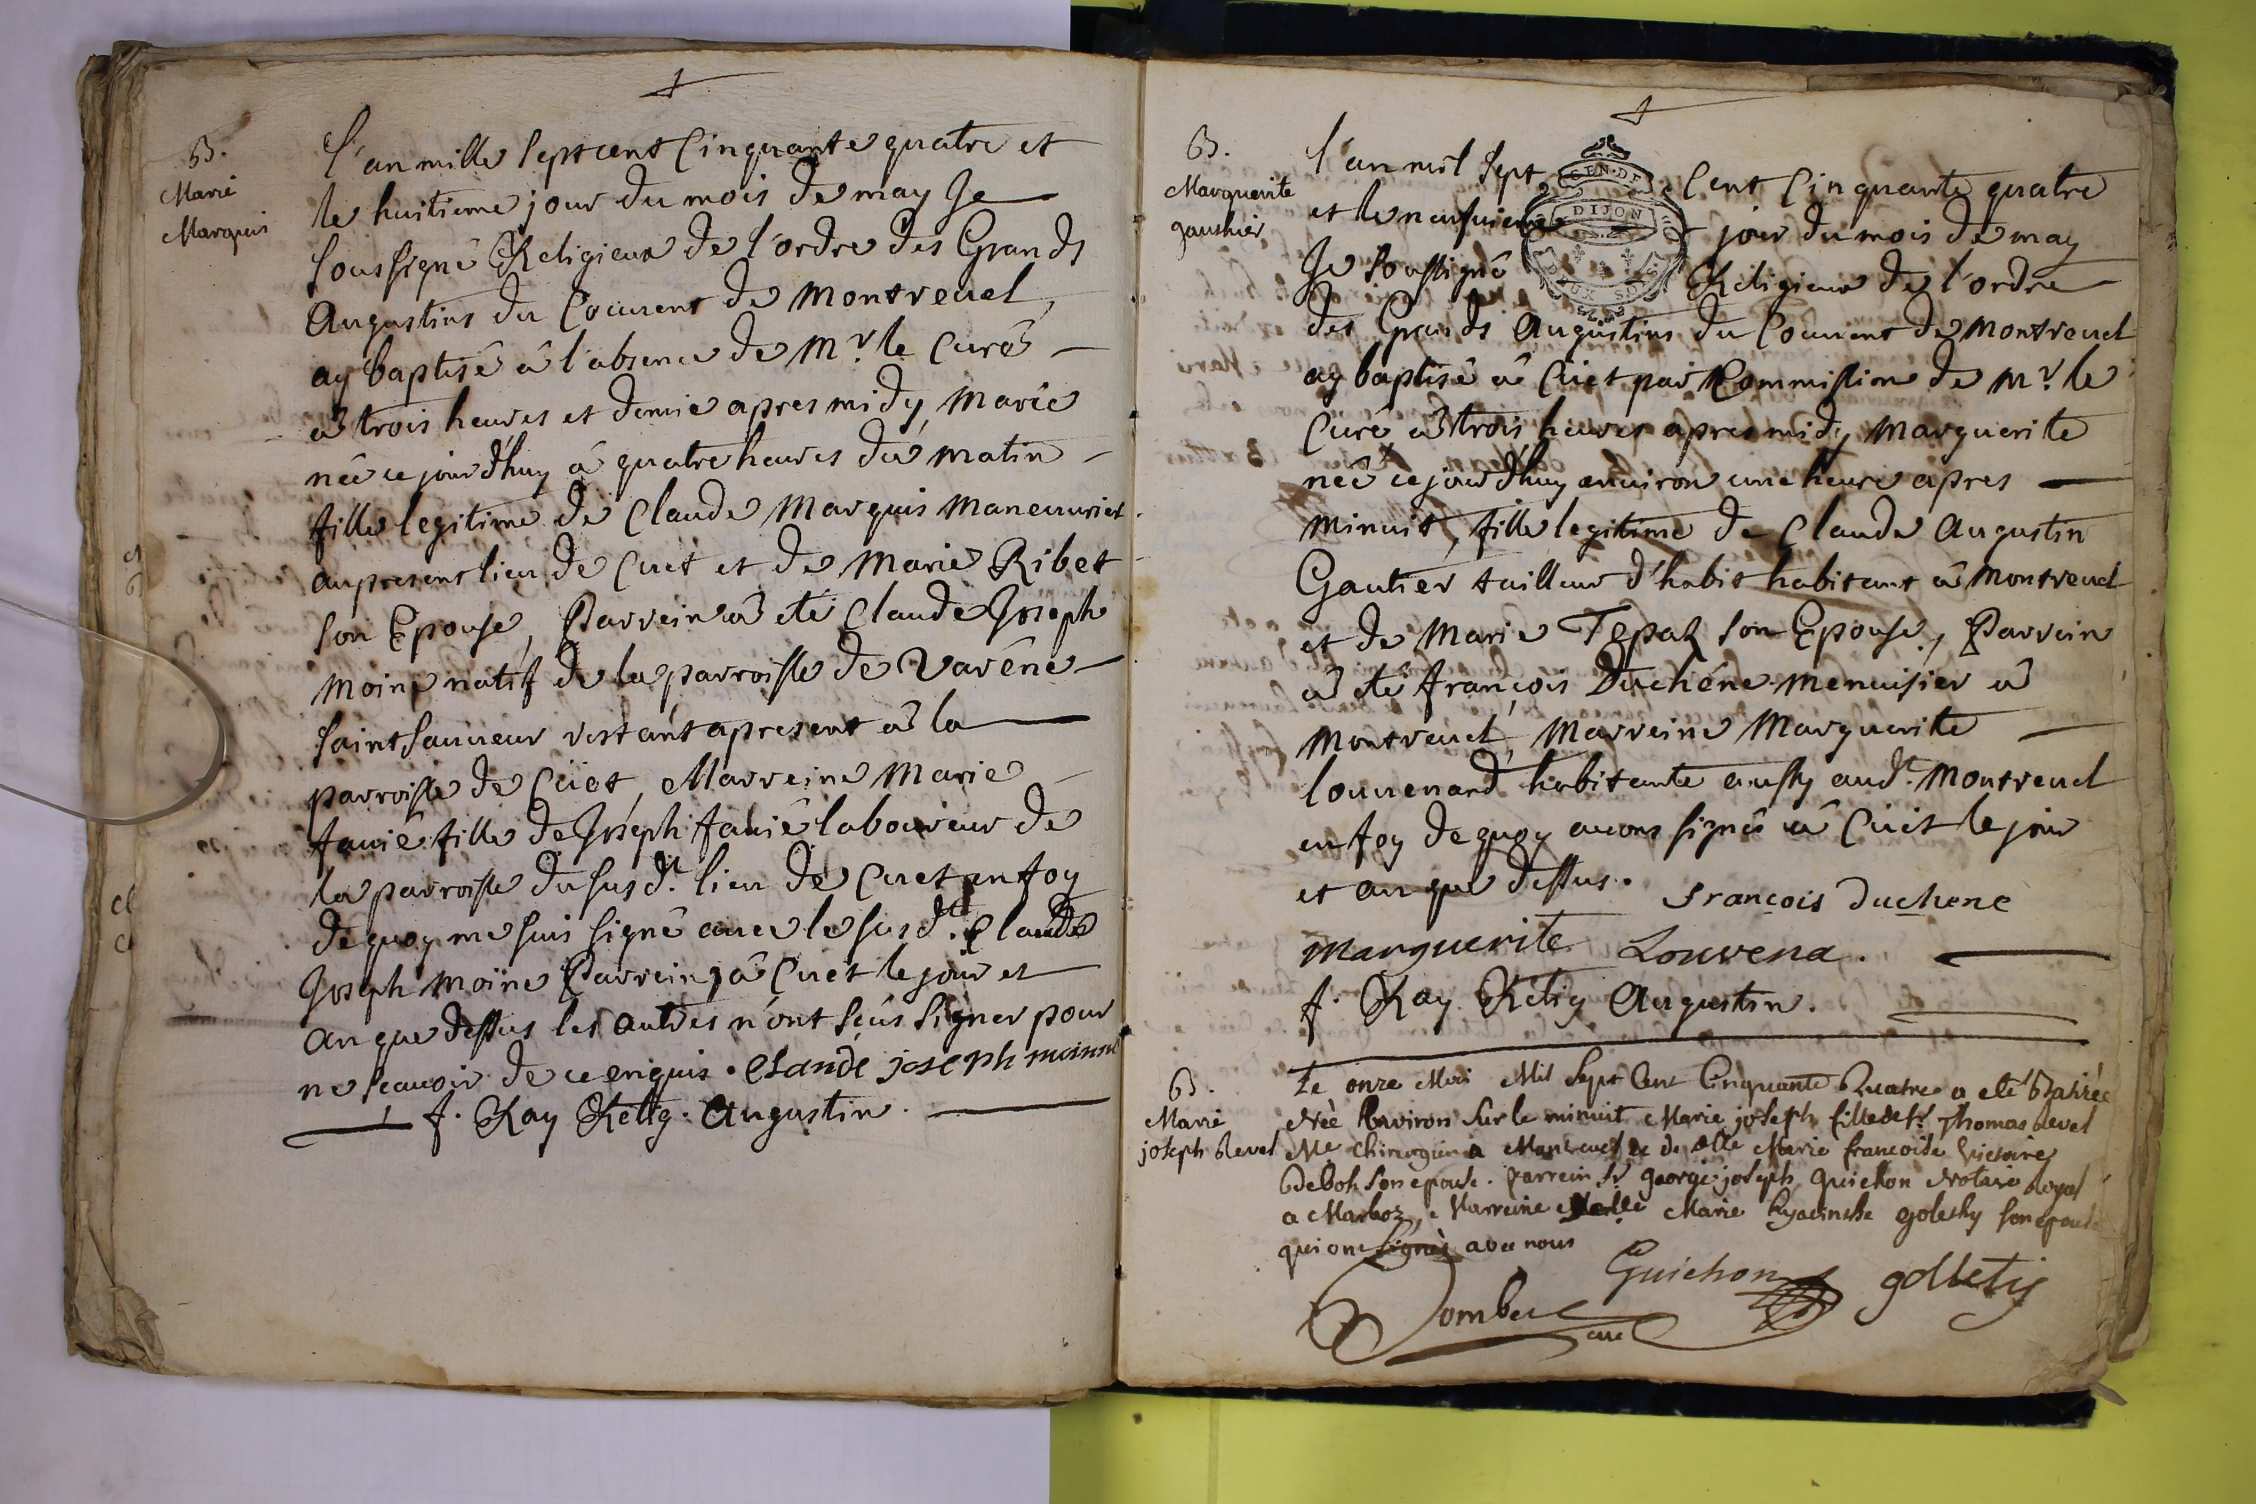 B.
Marie
Marquis
L'an mille sept cent Cinquante quatre et
le huitieme jour du mois de may Je
soussigné Religieux de l'ordre des Grands
Augustins du Couvent de Montreuel,
ay baptisé â l'absence de Mr. le Curé
â trois heures et demie apres midy, Marie
née ce jourd'huy â quatre heures du matin
fille legitime de Claude Marquis Maneuurier
au present lieu de Cuet et de Marie Ribet
son Epouse, Parrein â eté Claude Joseph
Moine natif de la parroisse de Varêne
saint sauueur restant apresent â la
parroisse de Cuet, Marreine Marie
fauié fille de Joseph fauié laboureur de
la parroisse du susd.t lieu de Cuet en foy
de quoy me suis signé auec le susd.t Claude
Joseph Moine Parrein, â Cuet le jour et
an que dessus les autres n'ont sçus signer pour
ne sçauoir de ce enquis. Claude joseph moinne
f. Ray Relig. Augustin.
B.
Marguerite
gauthier
L'an mil sept Cent Cinquante quatre
et le neufuieme jour du mois de may
Je soussigné Religieux de l'ordre
GEN. DE
DIJON
DEUX S
des Grands Augustins du Couvent de Montreuel
ay baptisé â Cuet par Commission de Mr. le
Curé â trois heures apres midy, Marguerite
née ce jourd'huy enuiron une heure apres
minuit, fille legitime de Claude Augustin
Gautier tailleur d'habit habitant â Montreuel
et de Marie Tepaz son Epouse, Parrein
â eté françois Duchêne menuisier â
Montreuel, Marreine Marguerite
louuenard habitante aussy aud.t Montreuel
en foy de quoy auons signés â Cuet le jour
et an que dessus. François Duchene
Marguerite Louvena.
f. Ray Relig Augustin.
B.
Marie
joseph Revel
Le onze Mai Mil Sept Cent Cinquante Quatre a eté Batisée
Née Environ sur le minuit Marie joseph fille de Sr Thomas Revel
Me Chirurgien a Montreuel et de dlle Marie francoise Victoire
Debost son epouse. parrein Sr george joseph Guichon Notaire Royal
a Marboz, Marreine Marie hyacinthe golethy son epouse
qui ont signés avec nous
Guichon golletij
curé